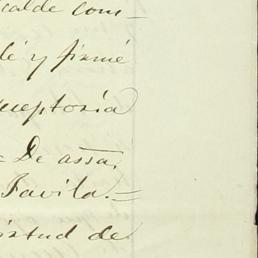 calde com-
dé y firmé
ceptoria
= De assa,
Favila.=
irtud de